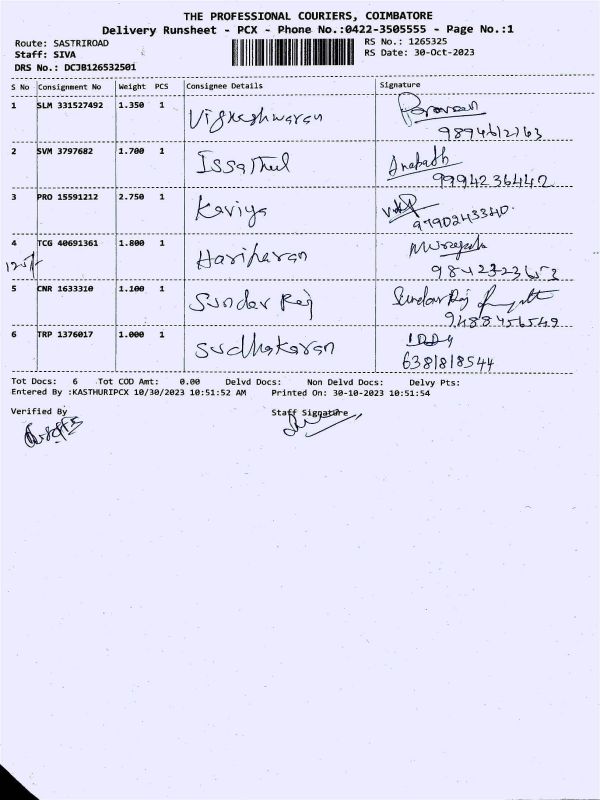 THE PROFESSIONAL COURIERS, COIMBATORE
Delivery Runsheet - PCX - Phone No.:0422-3505555 - Page No.:1
Route: SASTRIROAD
RS No.: 1265325
Staff: SIVA
RS Date: 30-Oct-2023
DRS No.: DCJB126532501
S No Consignment No Weight PCS Consignee Details Signature
1 SLM 331527492 1.350 1 Vigneshwaran
9894612163
2 SVM 3797682 1.700 1
9994236442
3 PRO 15591212 2.750 1 Kaviya
9790243340
4 TCG 40691361 1.800 1 Hariharan Murugesh
5 CNR 1633310 1.100 1 Sundar Raj Sundar Raj
9488456549
6 TRP 1376017 1.000 1 Sudhakaran
6381818544
Tot Docs: 6 Tot COD Amt: 0.00 Delvd Docs: Non Delvd Docs: Delvy Pts:
Entered By :KASTHURIPCX 10/30/2023 10:51:52 AM Printed On: 30-10-2023 10:51:54
Verified By Staff Signature